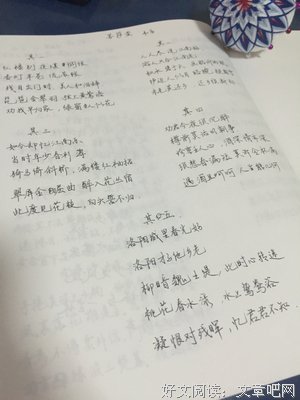 菩萨蛮 韦庄
其一
红楼别夜堪惆怅
香灯半卷流苏帐
残月出门时 美人和泪辞
琵琶金翠羽 弦上黄莺语
劝我早归家 绿窗人似花
其二
人人尽说江南好
游人只合江南老
春水碧于天 画船听雨眠
垆边人似月 皓腕凝霜雪
未老莫还乡 还乡须断肠
其三
如今却忆江南乐
当时年少春衫薄
骑马倚斜桥 满楼红袖招
翠屏金屈曲 醉入花丛宿
此度见花枝 白头誓不归
其四
劝君今夜须沉醉
樽前莫话明朝事
珍重主人心 酒深情亦深
须愁春漏短 莫诉金杯满
遇酒且呵呵 人生能几何
其五
洛阳城里春光好
洛阳才子他乡老
柳暗魏王堤 此时心转迷
桃花春水渌 水上鸳鸯浴
凝恨对残晖 忆君君不知
好文阅读:文章吧网